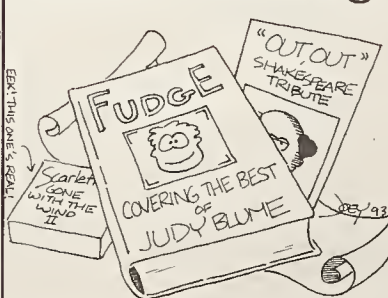 EEK! THIS ONE'S REAL!
Scarlett
GONE
WITH THE
WIND
II
FUDGE
COVERING THE BEST
OF
JUDY BLUME
"OUT, OUT"
SHAKESPEARE
TRIBUTE